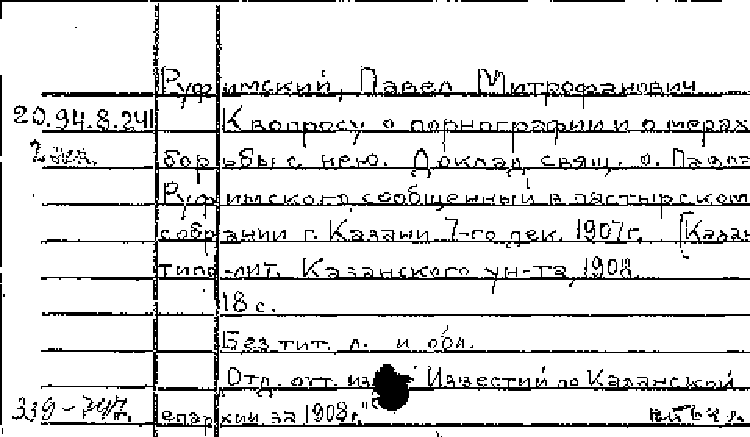 Руфимский, Павел Митрофанович
20.94.8.241 К вопросу о порнографии и о мерах
2 экз. борьбы с нею. Доклад свящ. о. Павла
Руфимского сообщенный в пастырском
собрании г. Казани 7-го дек. 1907г. [Казан
типо-лит. Казанского ун-та, 1908.
18 с.
Без тит. л. и обл.
Отд. отт. из "Известий по Казанской
епархии за 1908г."